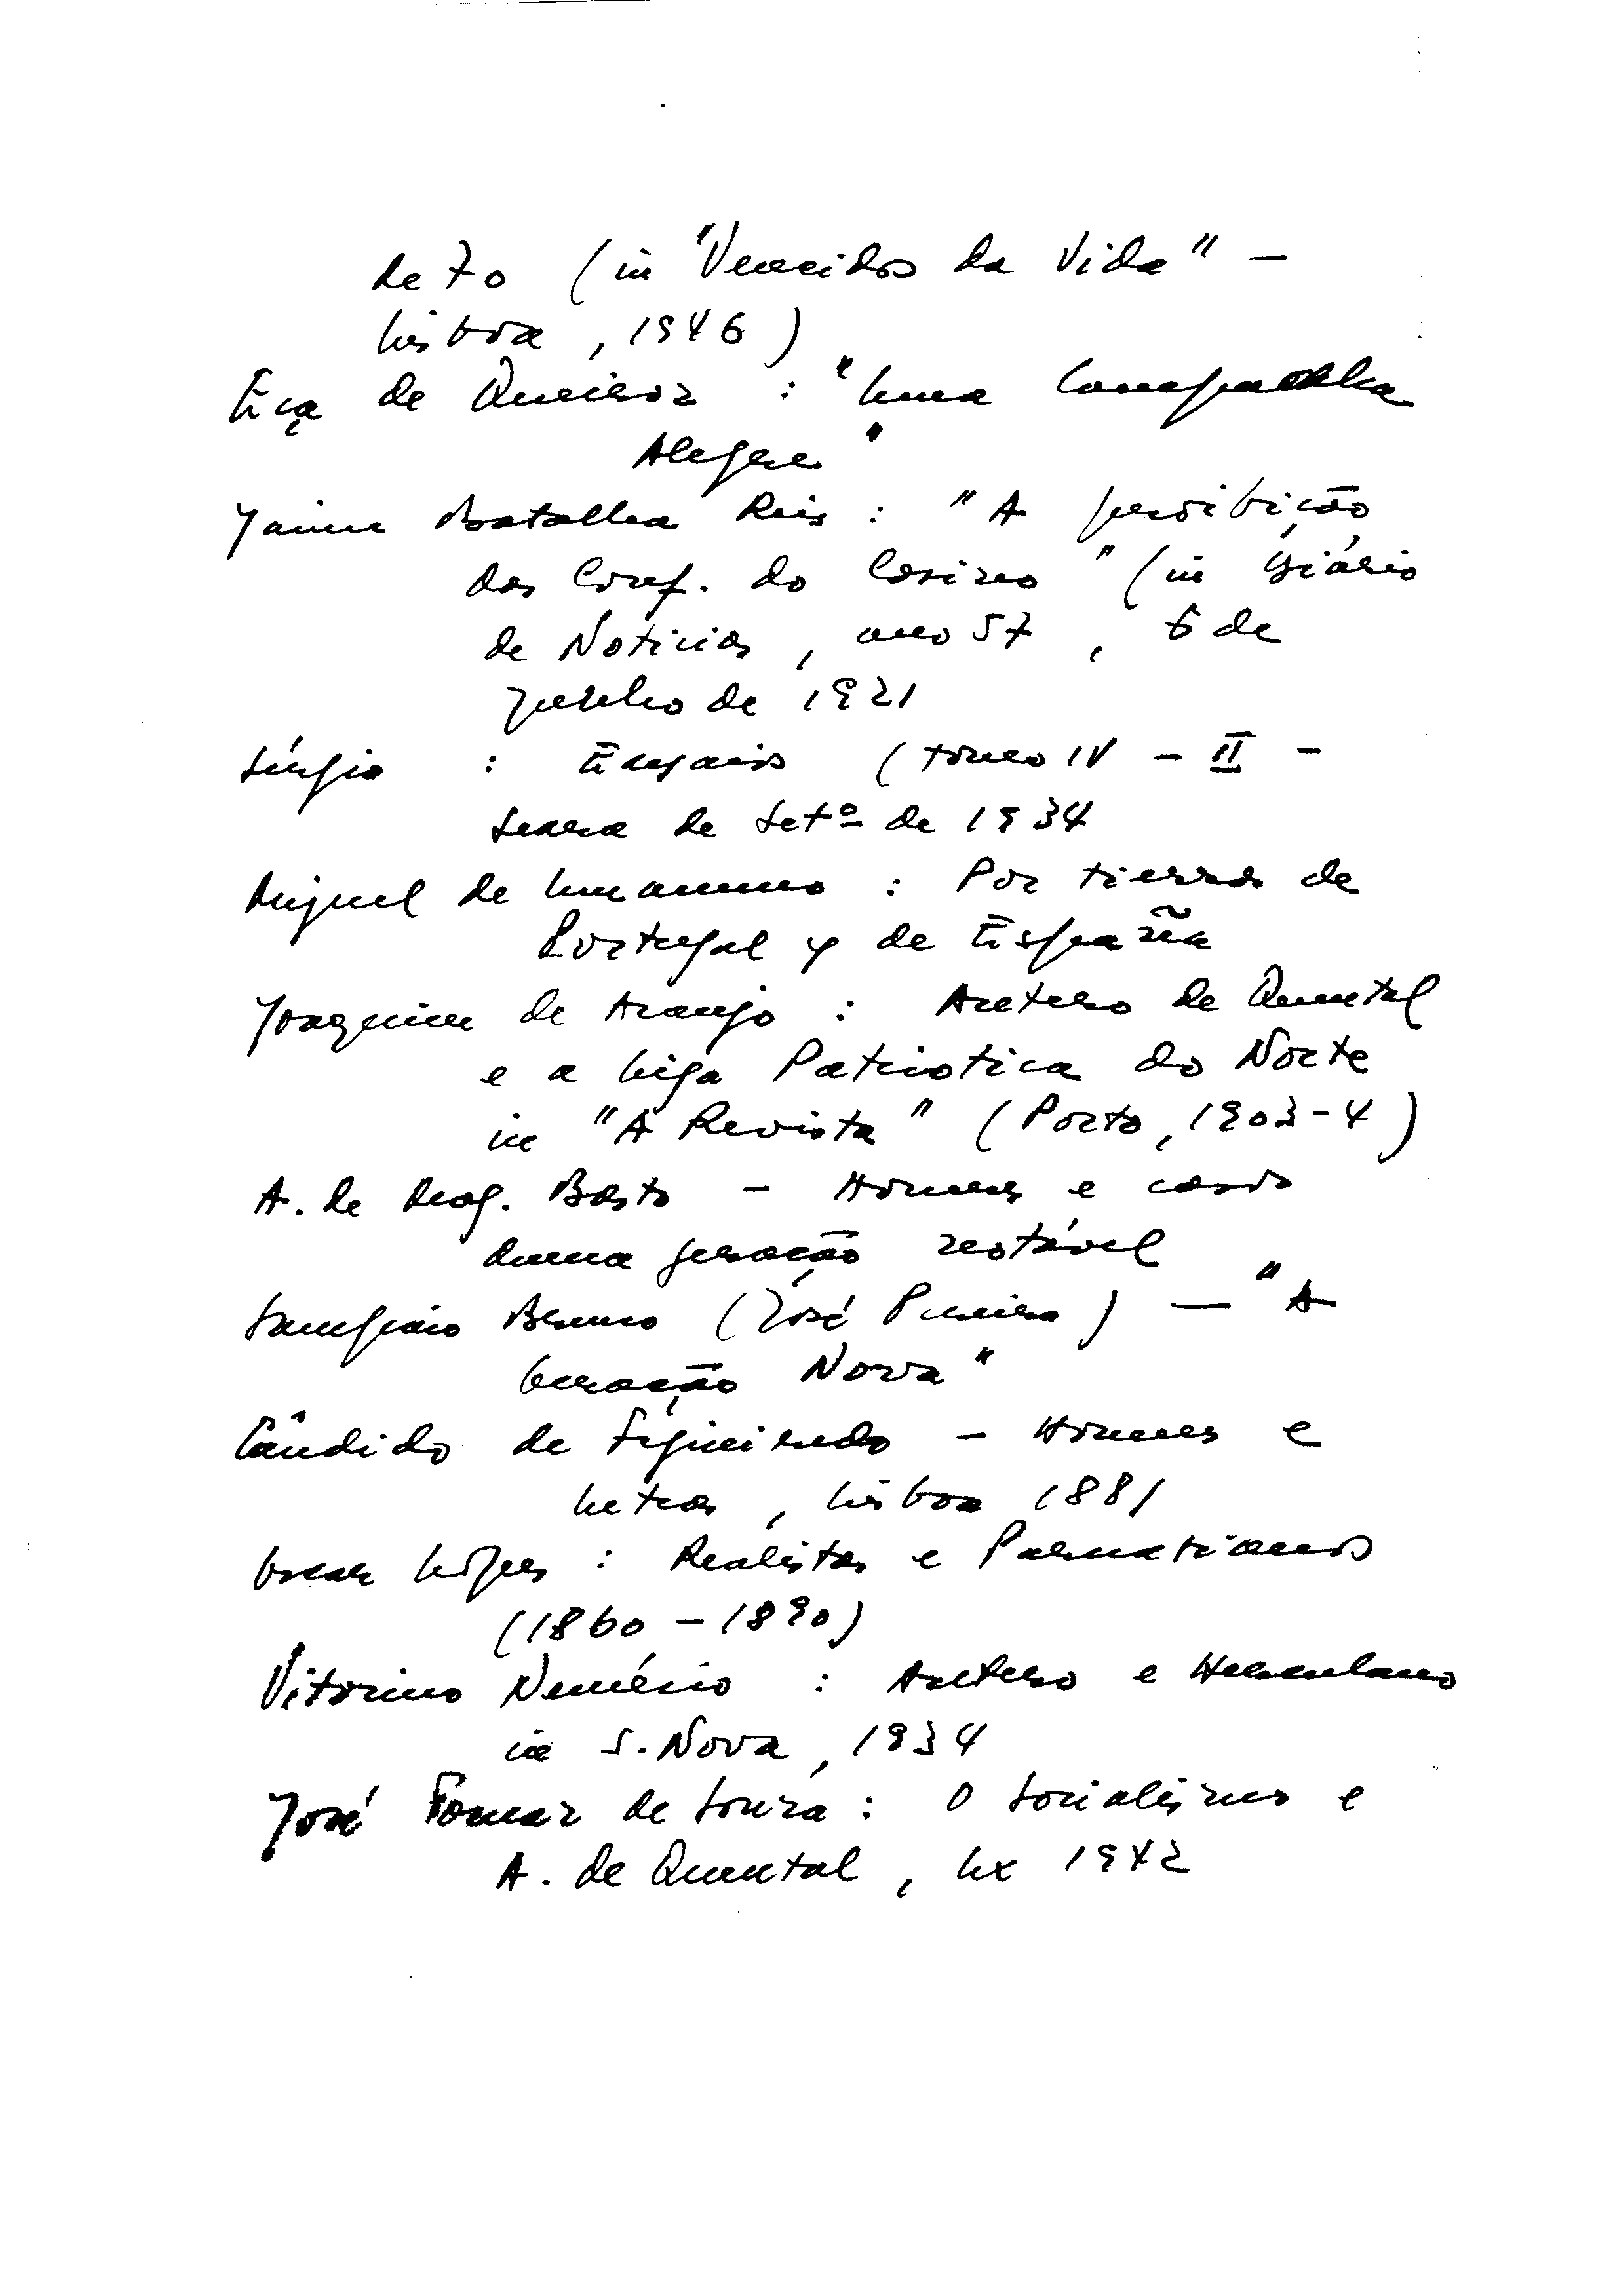 de 70 (in "Vencidos da Vida" –
Lisboa, 1946)
Eça de Queiroz : "Uma Campanha
Alegre"
Jaime Batalha Reis : "A proibição
das Conf. do Casino" (in Diário
de Noticias, ano 57, 6 de
Junho de 1921
Sérgio : Ensaios (tomo IV – II –
Seara de Setº de 1934
Miguel de Unamuno : Por tierras de
Portugal y de España
Joaquim de Araujo : Antero de Quental
e a Liga Patriotica do Norte
in "A Revista" (Porto, 1903-4)
A. de Mag. Basto – Homens e casos
duma geração notável
Sampaio Bruno (José Pereira) — "A
Geração Nova"
Cândido de Figueiredo – Homens e
Letras, Lisboa 1881
Oscar Lopes : Realistas e Parnasianos
(1860 – 1890)
Vitorino Nemésio : Antero e Herculano
in S. Nova, 1934
José Tomaz de Souza : O Socialismo e
A. de Quental, Lx 1942